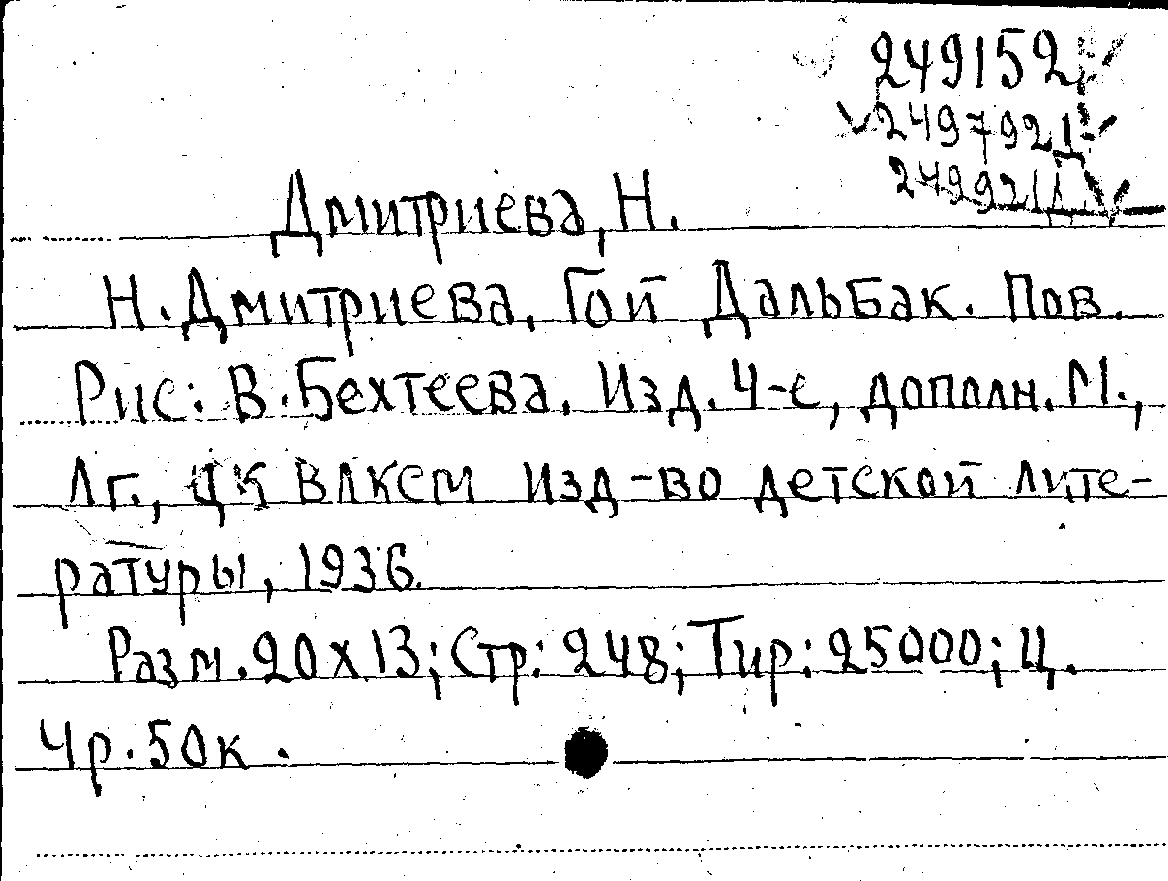 249152
249792Д
249921Д
Дмитриева, Н.
Н. Дмитриева. Гой Дальбак. Пов.
Рис: В. Бехтеева. Изд. 4-е, дополн. М.,
Лг., ЦК ВЛКСМ Изд-во детской лите-
ратуры, 1936.
Разм. 20х13; Стр: 248; Тир: 25000; Ц.
4р. 50к.